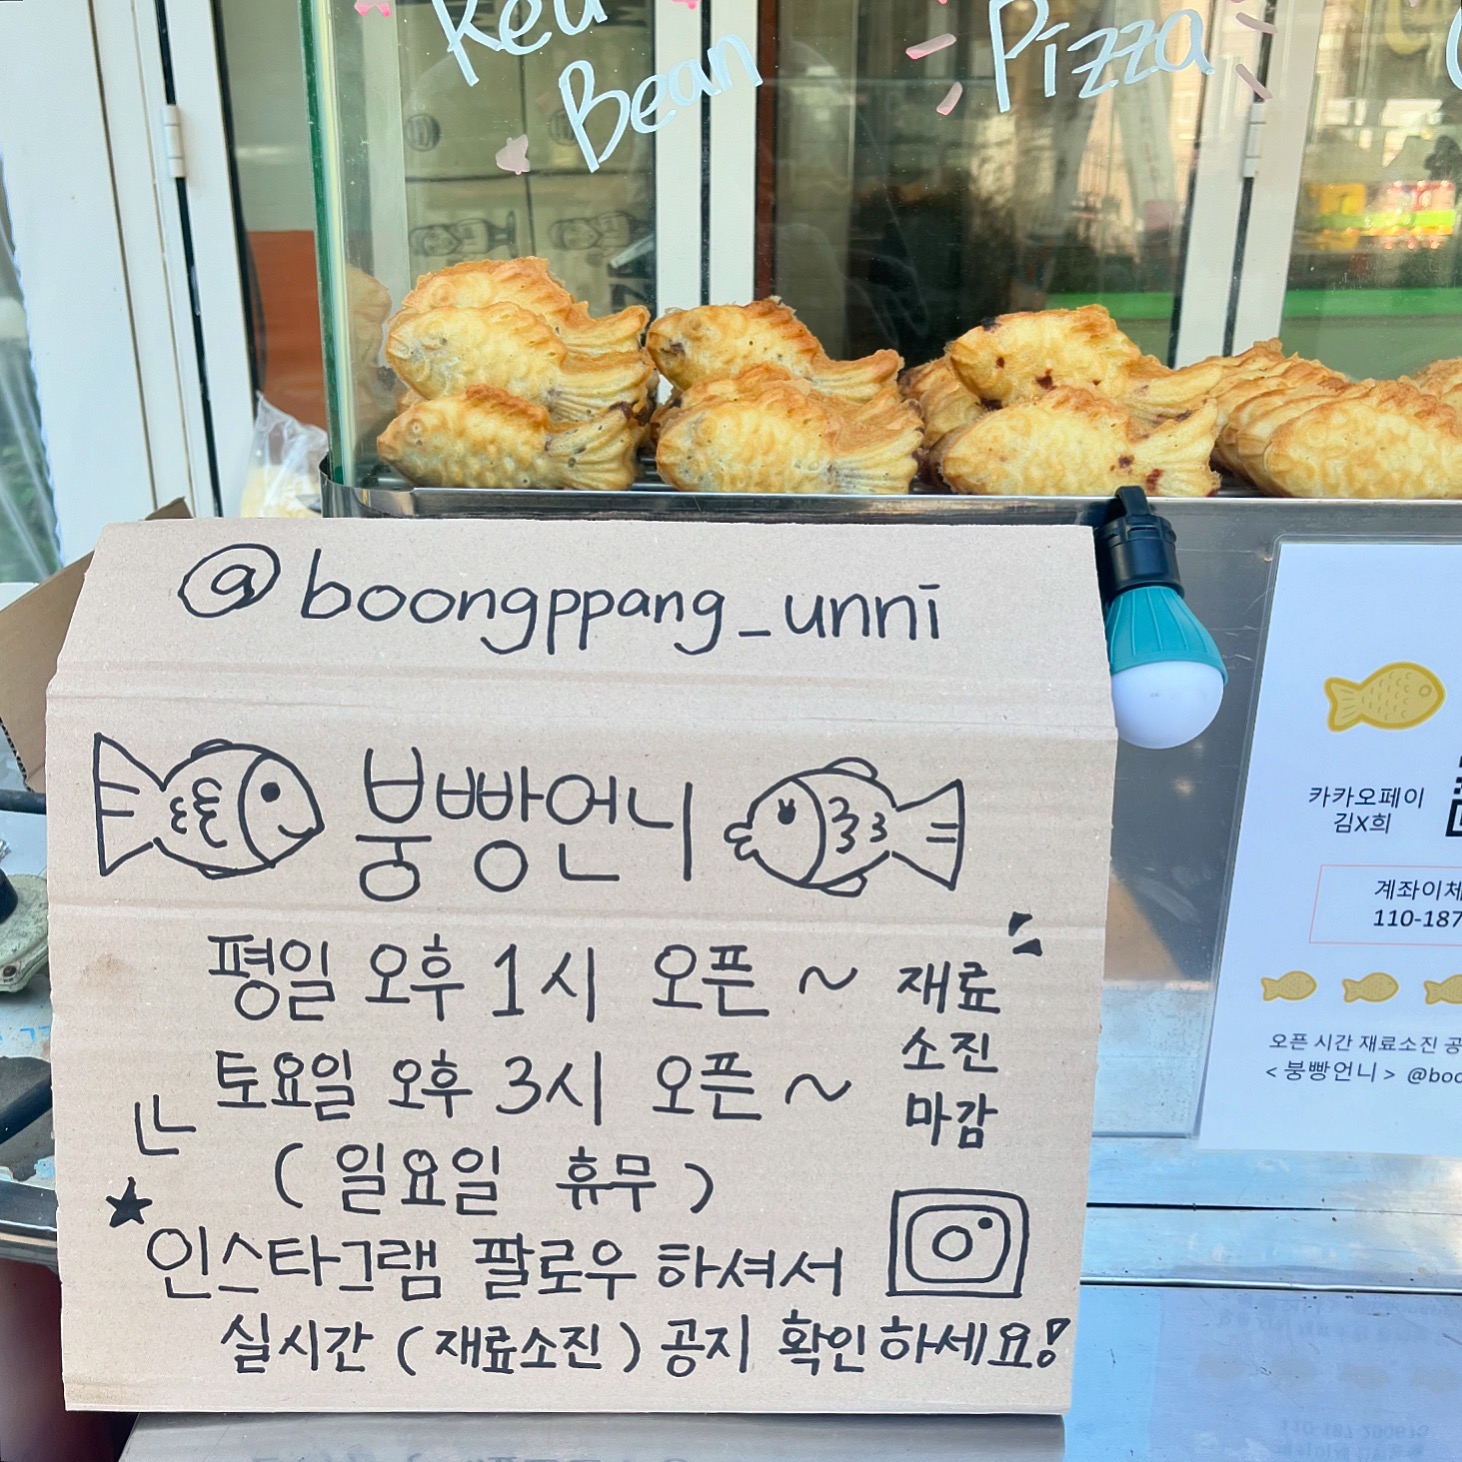 Red
Bean
Pizza
@boongppang_unni
붕빵언니
평일 오후 1시 오픈 ~ 재료
소진
마감
토요일 오후 3시 오픈 ~
(일요일 휴무)
★인스타그램 팔로우 하셔서
실시간 (재료소진) 공지 확인하세요!
카카오페이
김X희
계좌이체
110-187
오픈 시간 재료소진 공
<붕빵언니> @boo